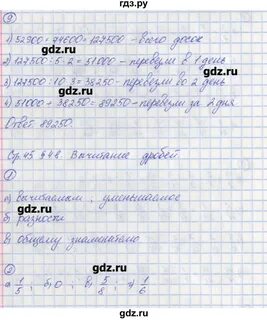 9
1) 52900 + 74600 = 127500 - всего досок
2) 127500 : 5 · 2 = 51000 - перевезли в 1 день
3) 127500 : 10 · 3 = 38250 - перевезли во 2 день
4) 51000 + 38250 = 89250 - перевезли за 2 дня
Ответ 89250
Ср. 45 §48. Вычитание дробей
1
а) вычитаемым; уменьшаемое
б) разности
в) общему знаменателю
2
а) 1/5; б) 0; в) 5/8; г) 1/6